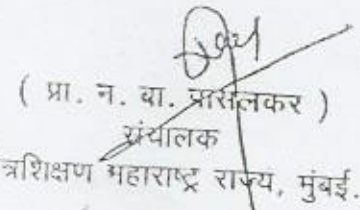 ( प्रा. न. बा. पासलकर )
संचालक
त्रशिक्षण महाराष्ट्र राज्य, मुंबई.